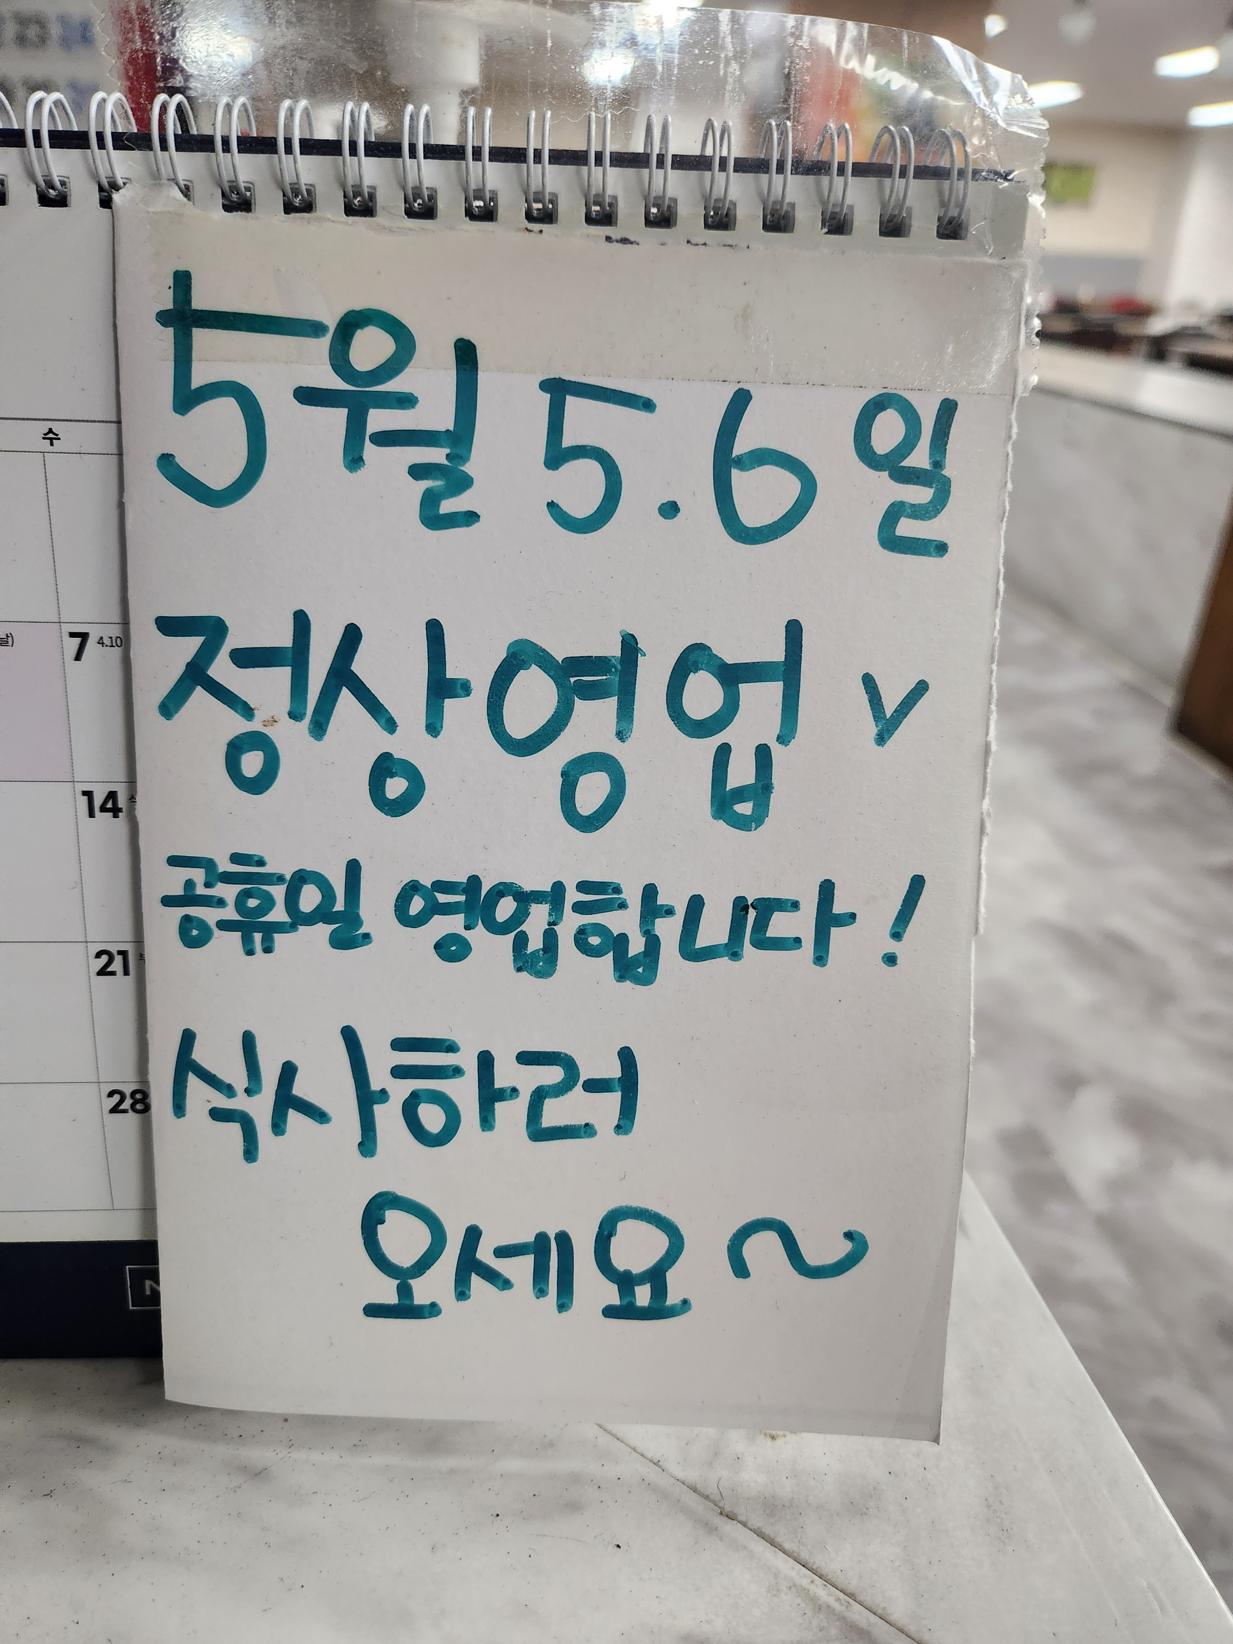 5월 5.6일
정상영업 v
공휴일 영업합니다!
식사하러
오세요~
수
7 4.10
14
21
28